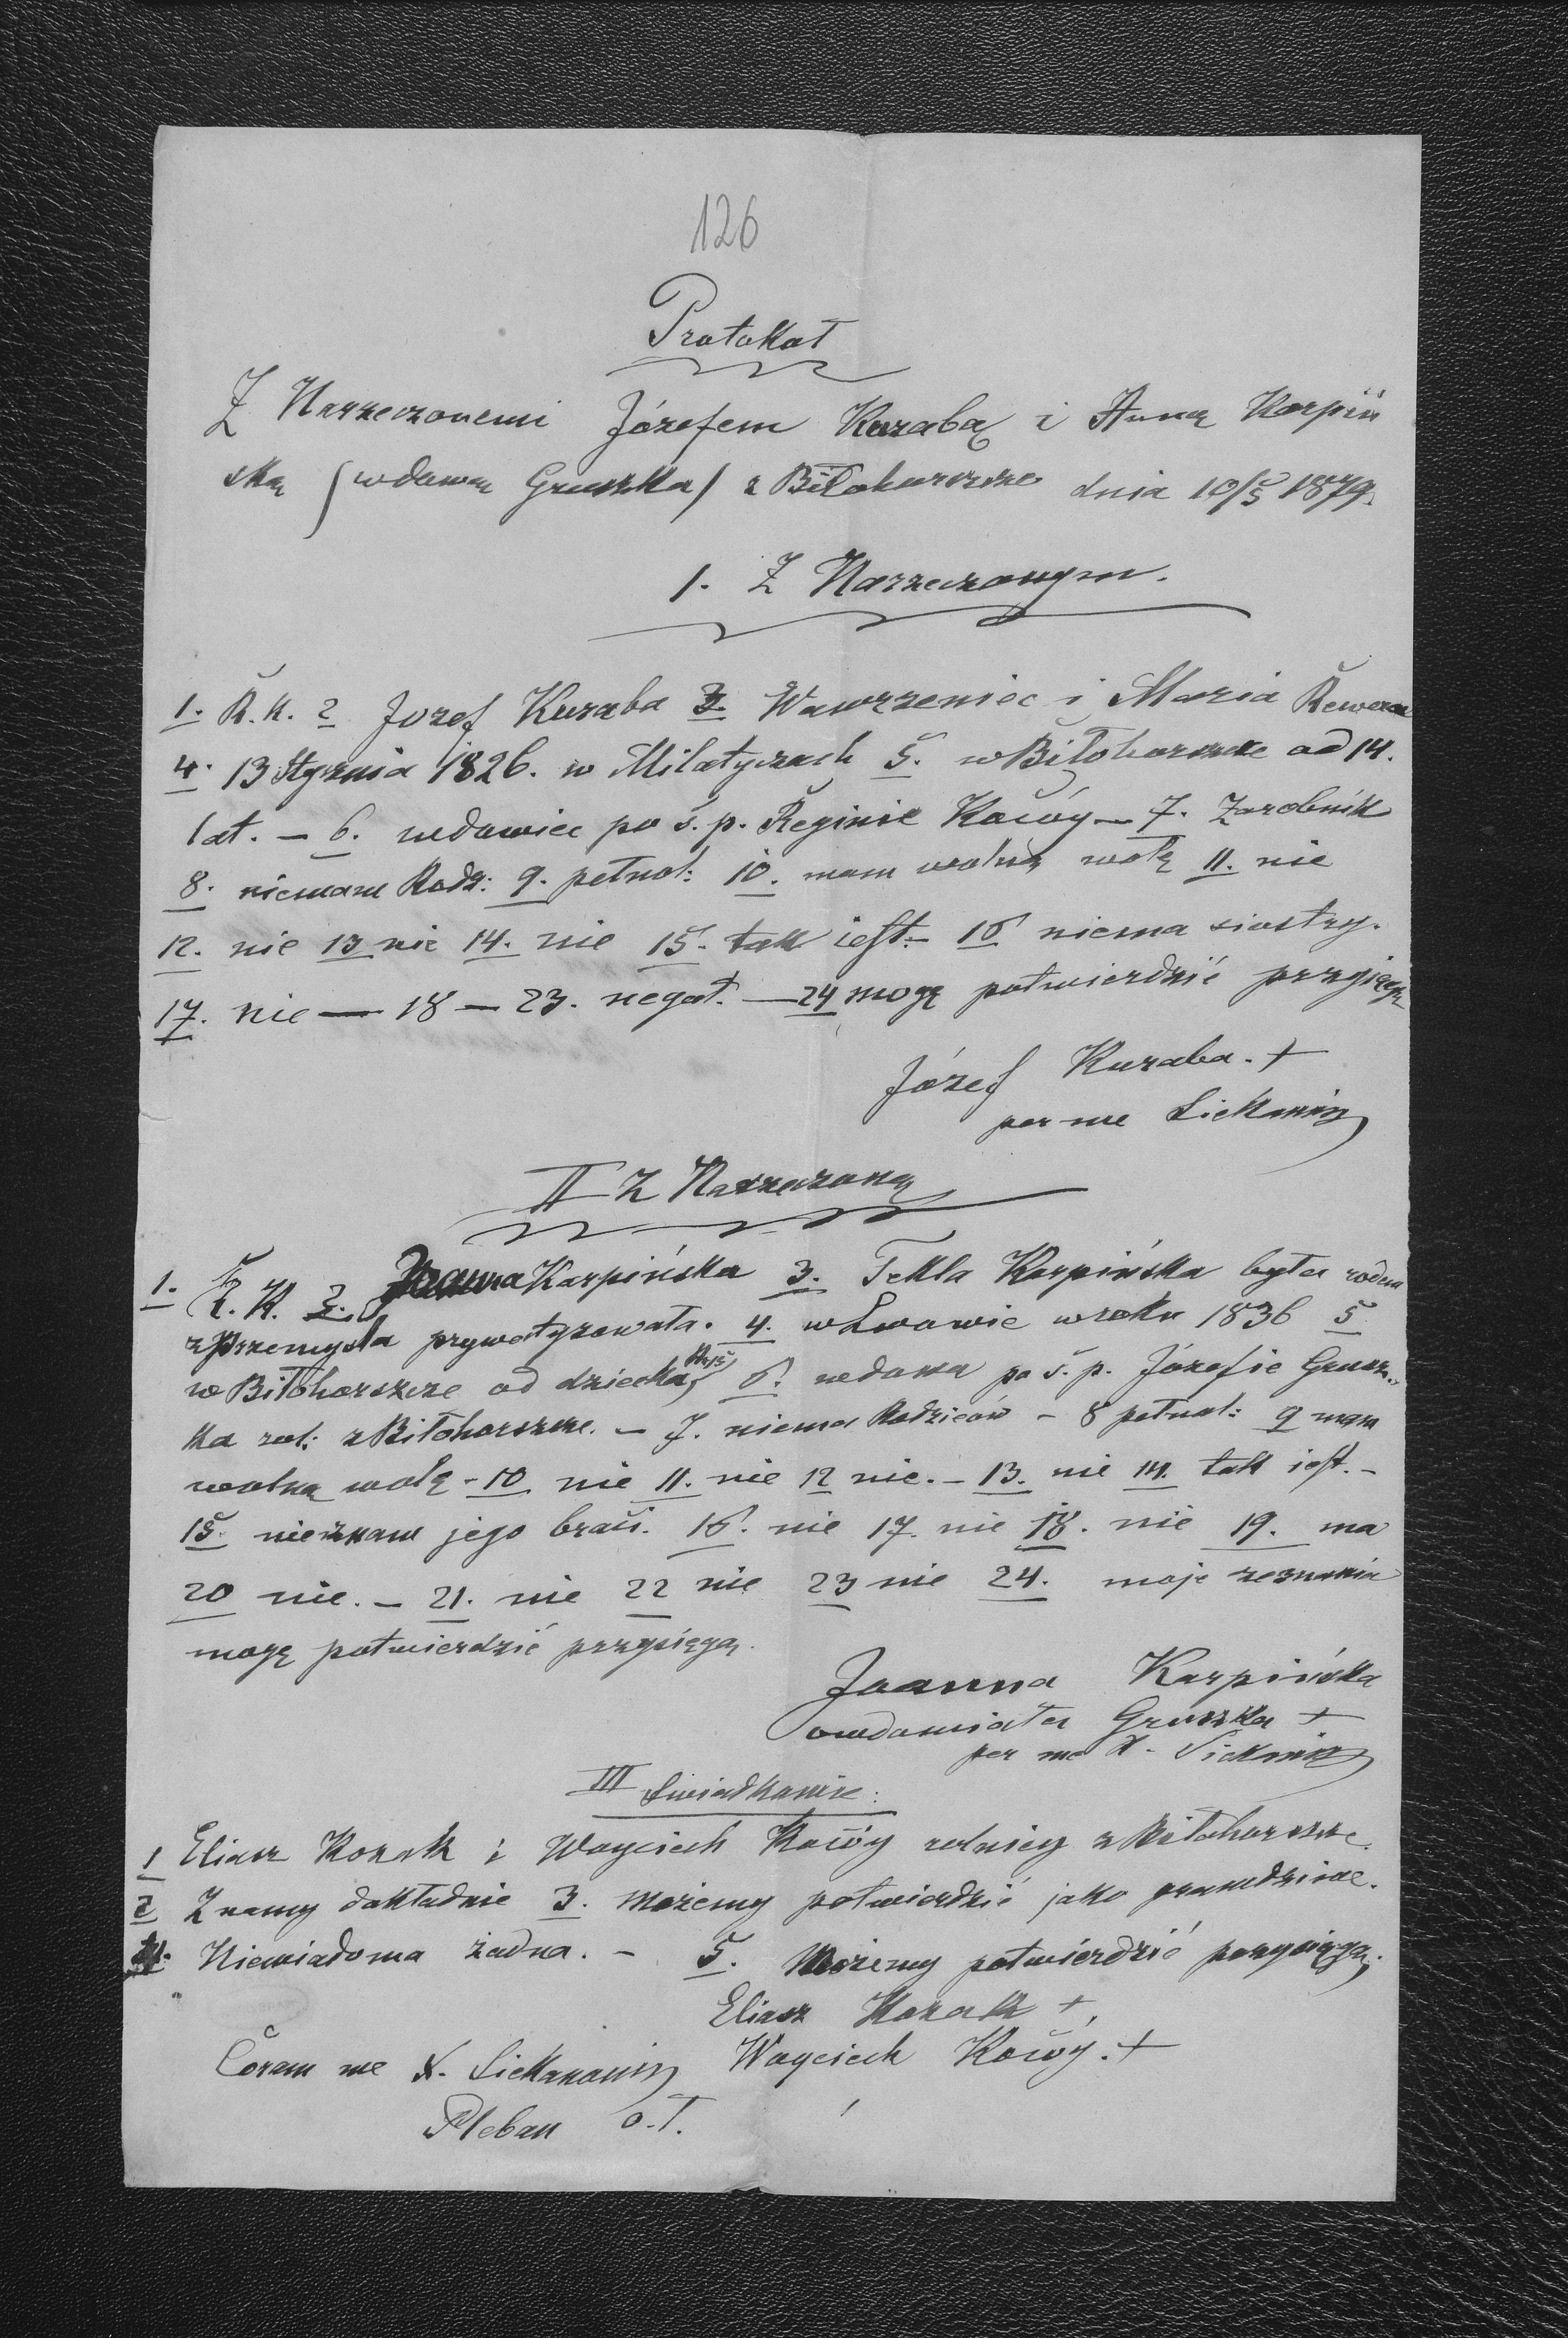 126
Protokoł
Z Narzeczonemi Józefem Kuzabą i Anną Karpiń
ską (wdową Gruszka) z Biłohorszcze dnia 10/5 1879.
1. Z Narzeczonym.
1. R. k. 2 Jozef Kuzaba 3. Wawrzeniec i Maria
4. 13 Stycznia 1826. w Milatyczach 5. w Biłohorszcze od 14.
lat. – 6. wdowiec po ś. p. Reginie Koćóy – 7. Zarobnik
8. niemam Rodz: 9. pełnol: 10. mam wolną wolę 11. nie
12. nie 13 nie 14. nie 15. tak iest. – 16 niema siostry.
17. nie — 18 — 23. negat. — 24 mogę potwierdzić przysięgą
Józef Kuzaba. +
per me
II Z Narzeczoną
1. R. K. 2. Joanna Karpińska 3. Tekla Karpińska była rodem
z Przemyśla prywatyzowała. 4. w Lwowie w roku 1836 5
w Biłohorszcze od dziecka, 6. wdowa po ś. p. Józefie Grusz-
ka rol: z Biłohorszcze. – 7. niema Rodziców – 8 pełnol: 9 mam
wolną wolę – 10 nie 11. nie 12 nie. – 13. nie 14. tak iest. –
15. nieznam jego braci. 16. nie 17. nie 18. nie 19. ma
20 nie. – 21. nie 22 nie 23 nie 24. moje zeznania
mogę potwierdzić przysięgą.
Joanna Karpińska
owdowiała Gruszka +
per me X.
III Świadkowie:
1 Eliasz Kozak i Woyciech Koćóy rolnicy z Biłohorszcze.
2 Znamy dokładnie 3. możemy potwierdzić jako prawdziwe.
4. Niewiadoma żadna. – 5. Możemy potwierdzić przysięgą.
Eliasz Kozak +.
Coram me X. Woyciech Koćóy. +
Pleban o. T.